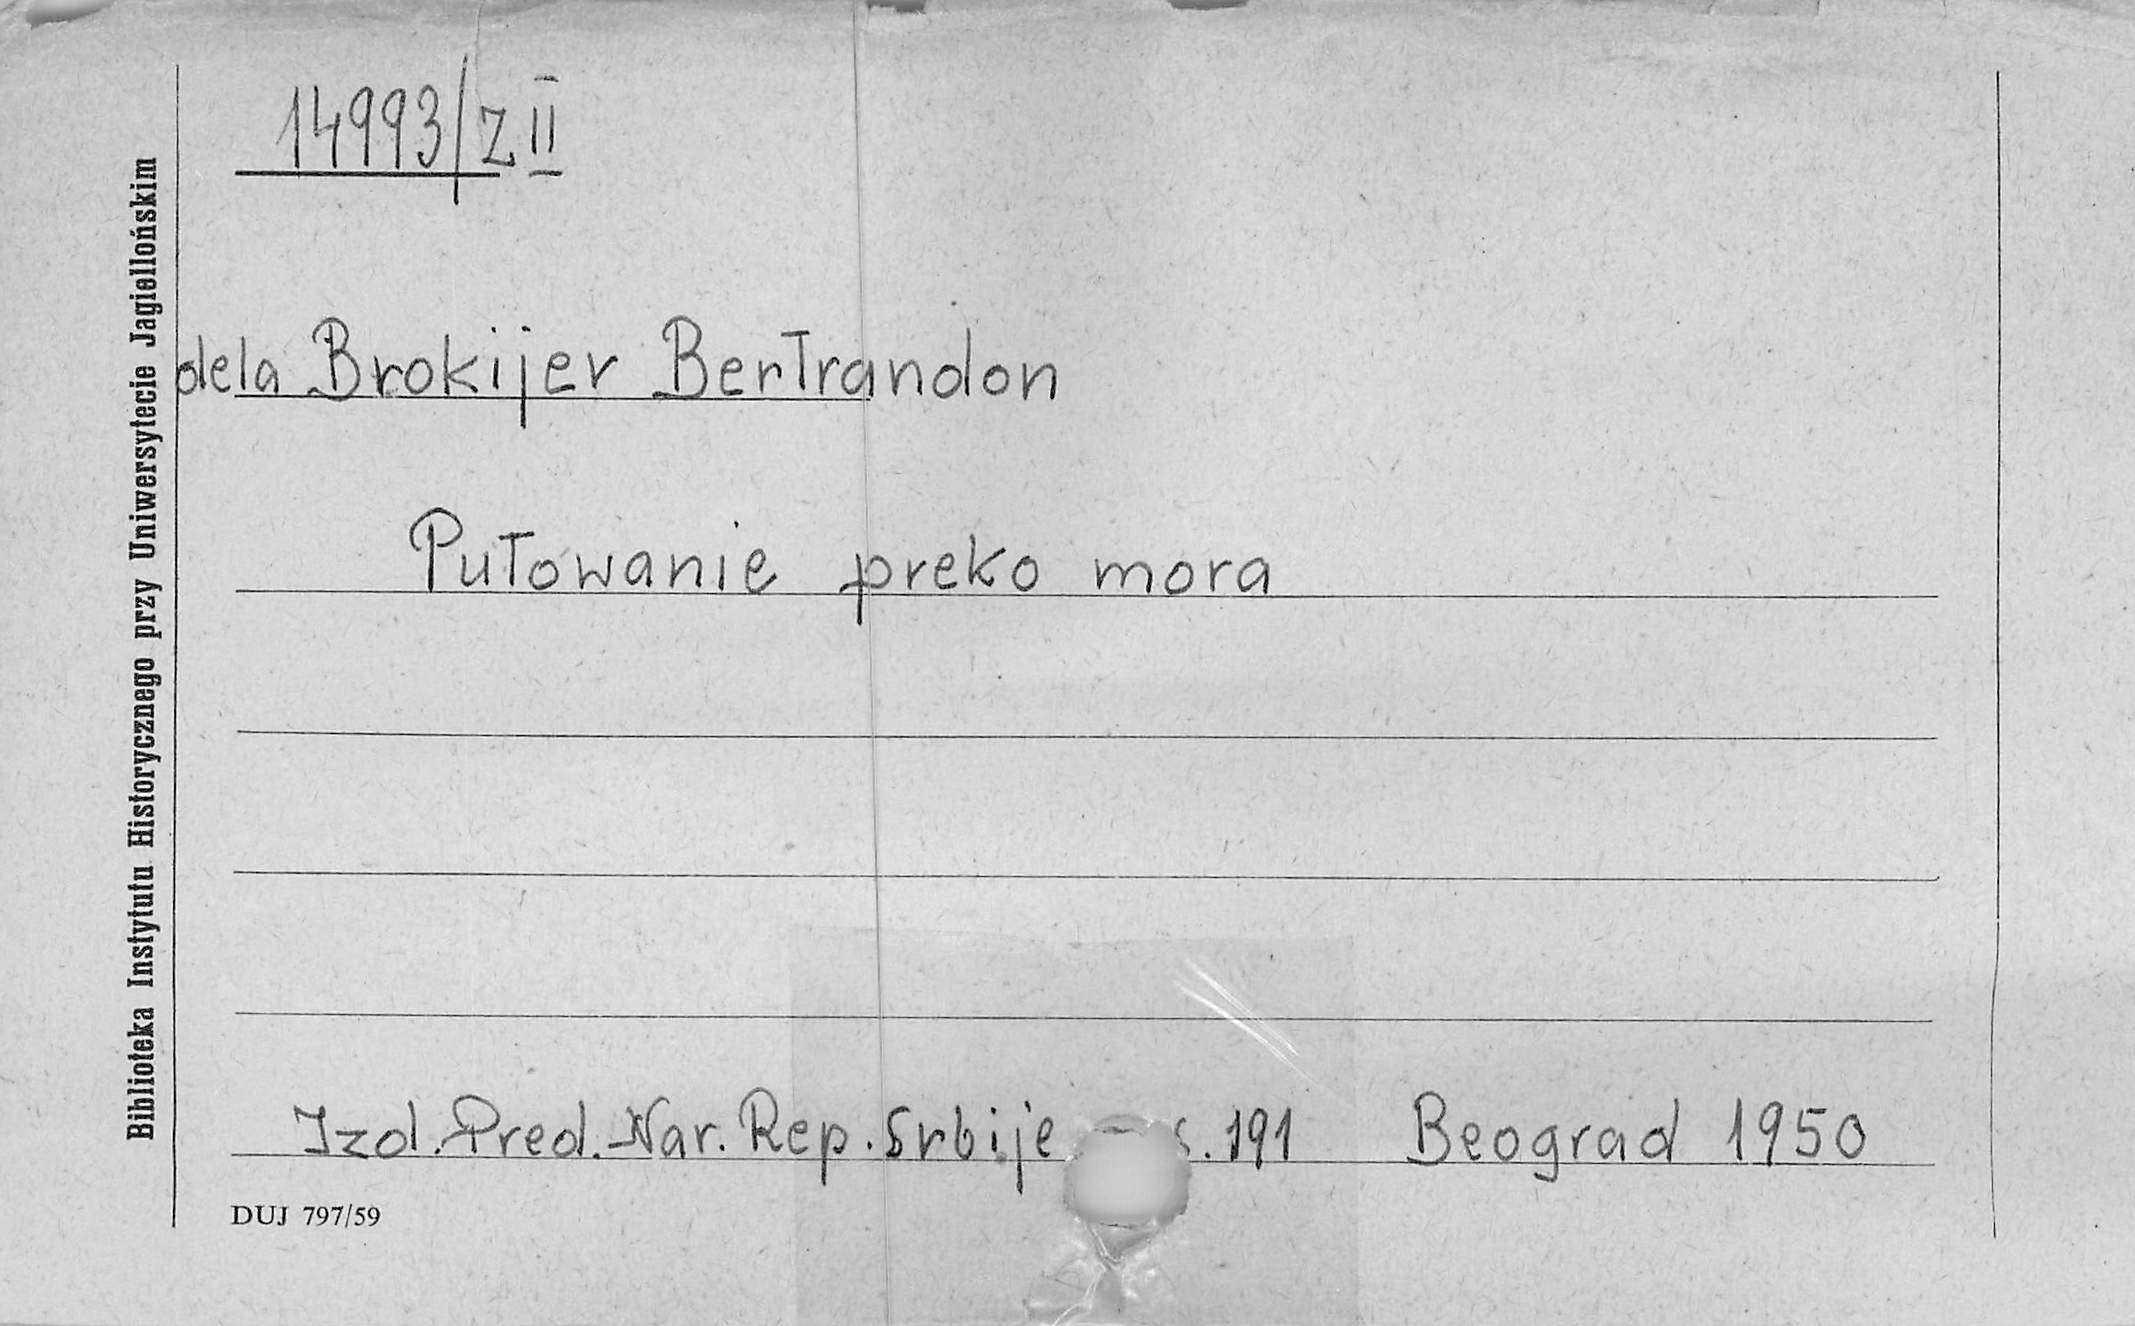 14993/Z II
dela Brokijer Bertrandon
Putowanie preko mora
Izd. Pred. Nar. Rep. Srbije s. 191 Beograd 1950
DUJ 797/59
Biblioteka Instytutu Historycznego przy Uniwersytecie Jagiellońskim